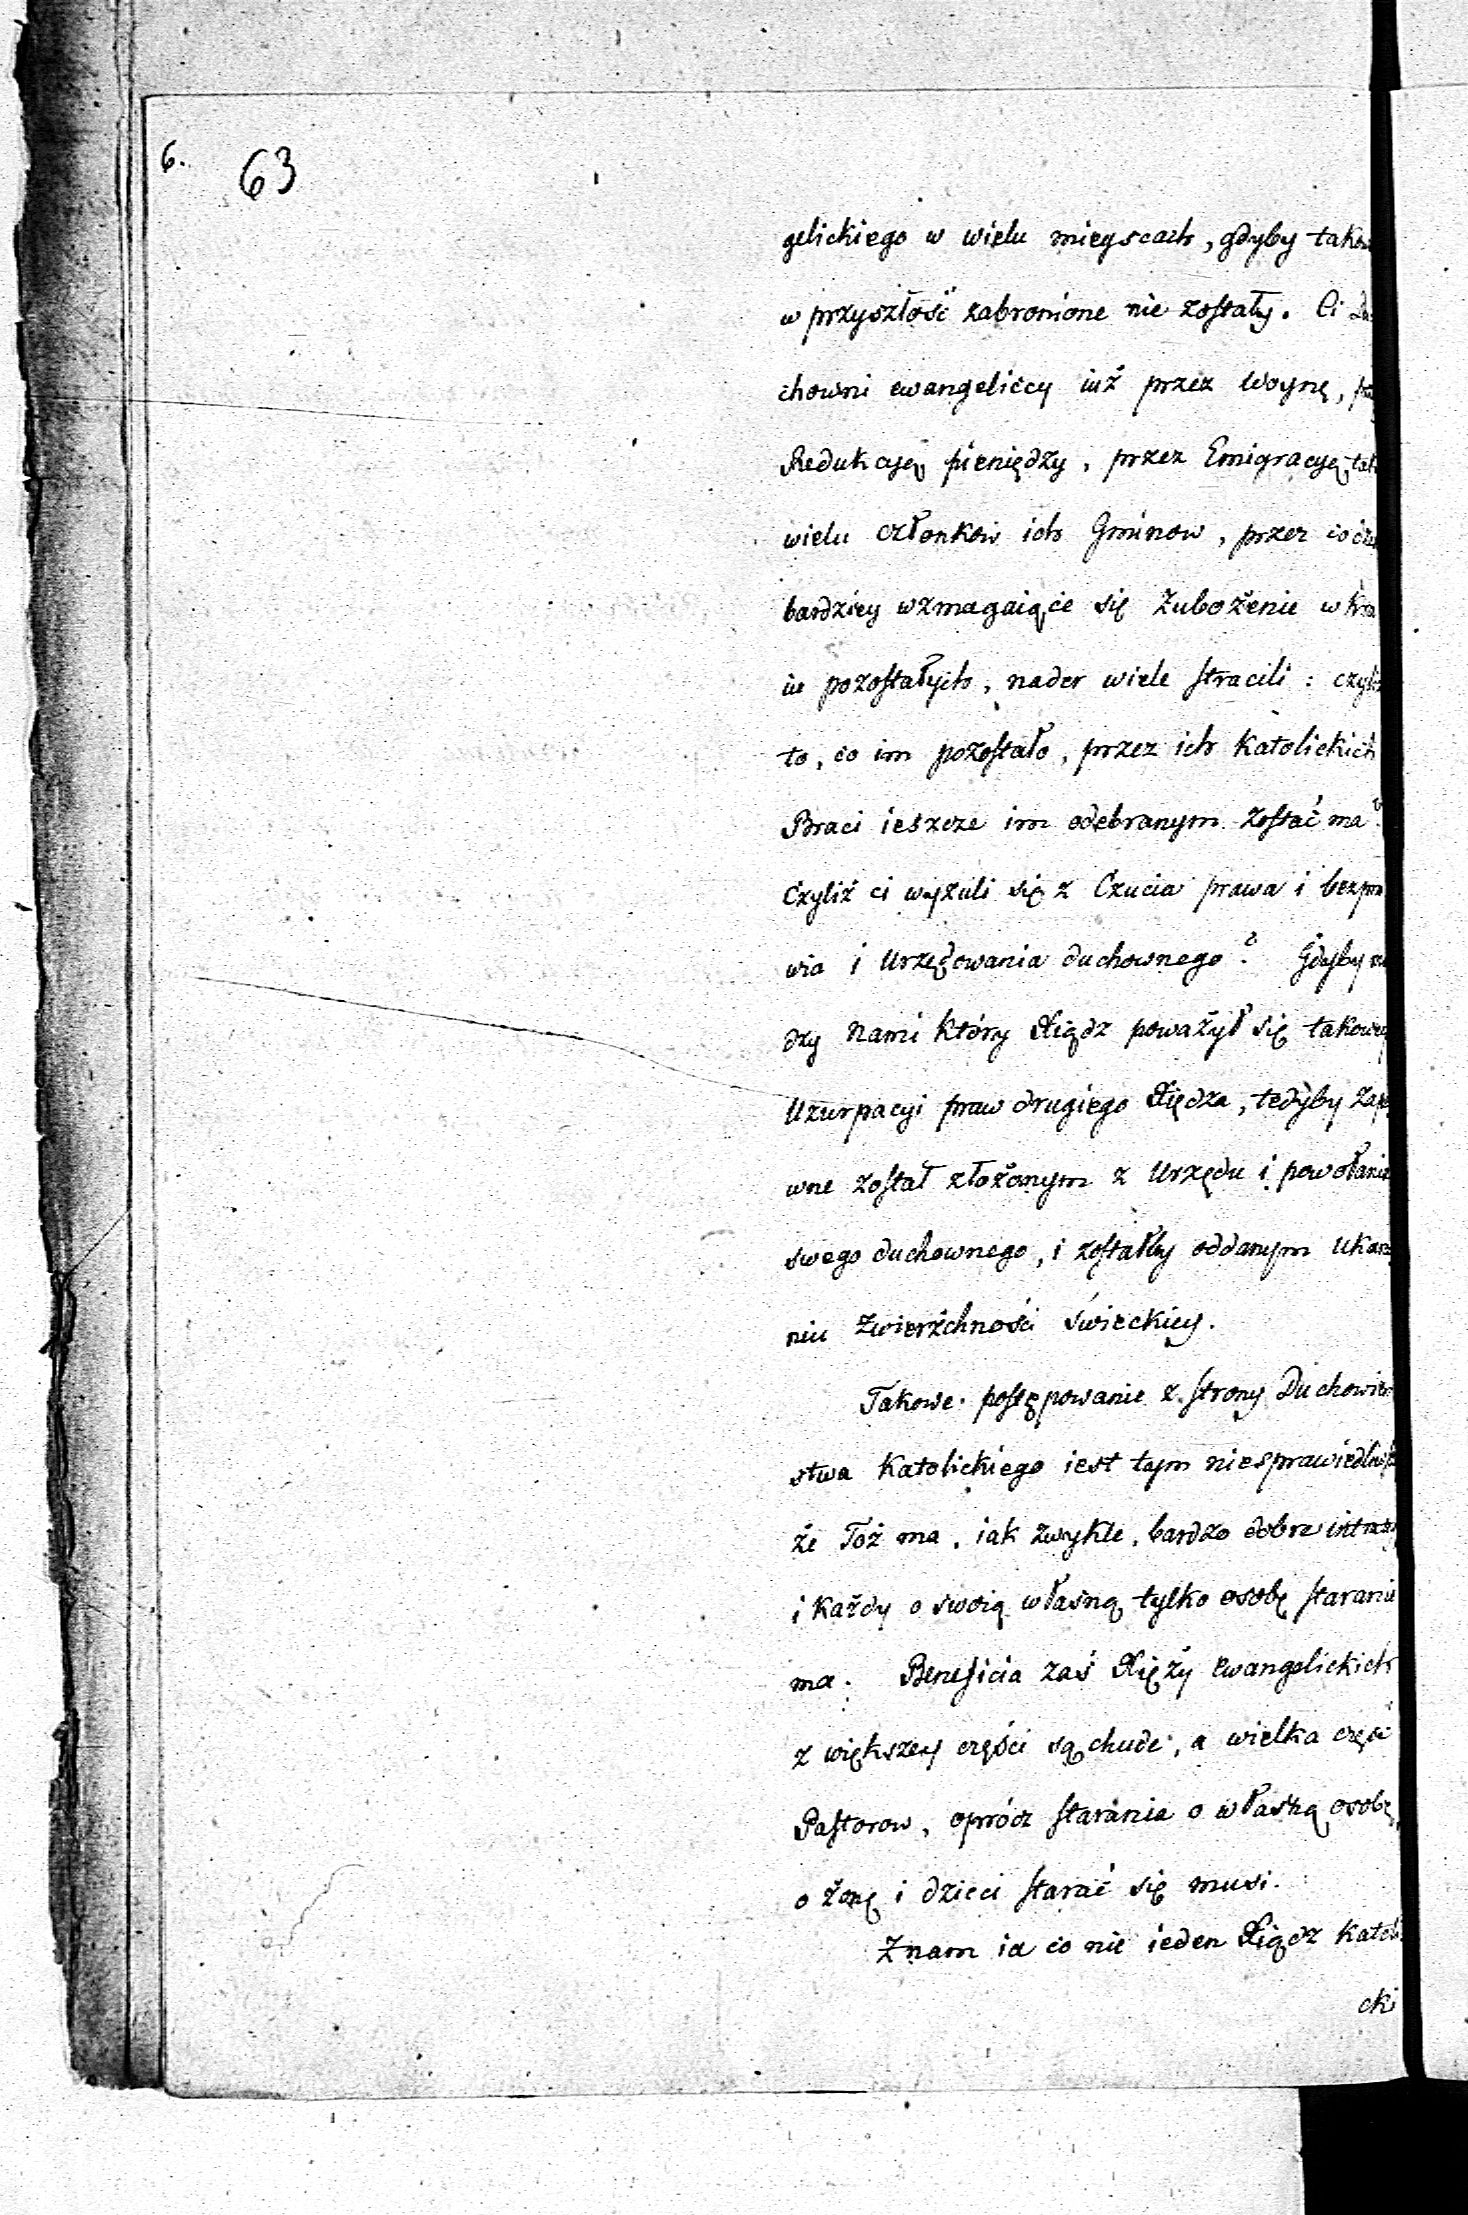 6. 63
gelickiego w wielu mieyscach, gdyby
w przyszłość zabronione nie zostały. Ci
chowni ewangeliccy iuż przez Woynę,
Redukcyę pieniędzy, przez Emigracyę
wielu członków ich Gminow, przez
bardziey wzmagaiące się Zubożenie w
iu pozostałych, nader wiele stracili:
to, co im pozostało, przez ich Katolickich
Braci ieszcze im odebranym zostać ma?
Czyliż ci wyzuli się z Czucia prawa i
wia i Urzędowania duchownego? Gdyby
dzy nami który Xiądz poważył się
Uzurpacyi praw drugiego Xiędza, tedyby
wne został złożonym z Urzędu i powołania
swego duchownego, i zostałby oddanym
niu Zwierzchności świeckiey.
Takowe postępowanie z strony
stwa Katolickiego iest tym
że Toż ma, iak zwykle, bardzo dobre
i Każdy o swoią własną tylko osobę staranie
ma. Beneficia zaś Xięży ewangelickich
z większey części są chude, a wielka część
Pastorow, oprócz starania o własną osobę,
o żonę i dzieci starać się musi.
Znam ia co nie ieden Xiądz
cki